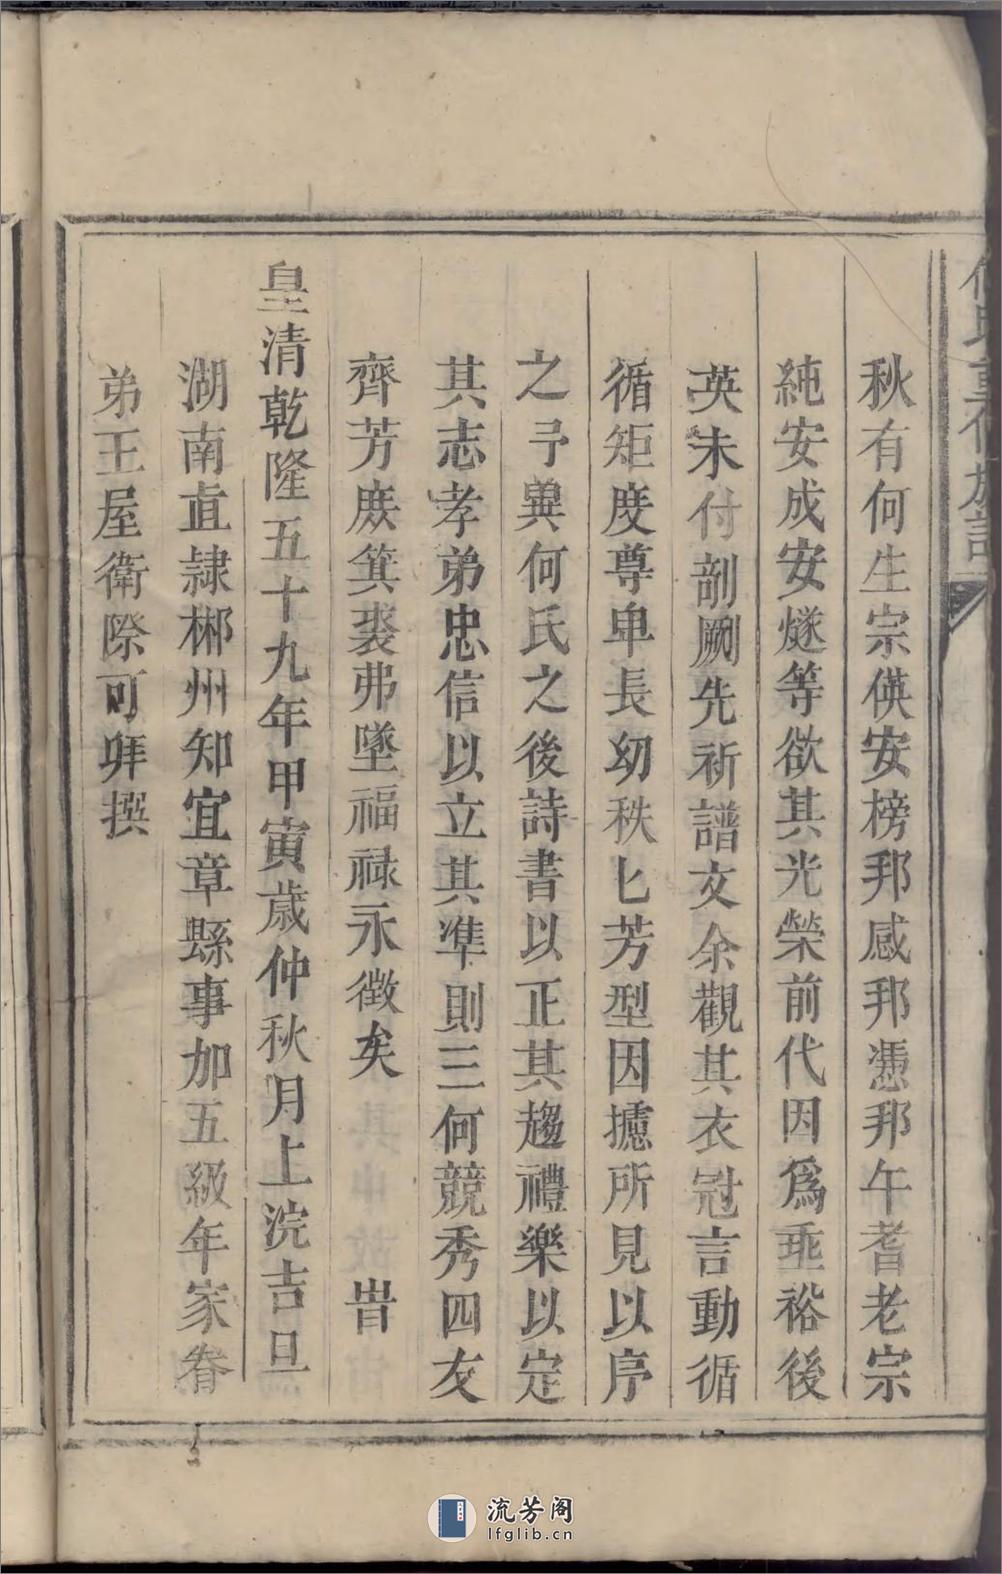 秋有何生宗偀安榜邦感邦憑邦午耆老宗
純安成安燧等欲其光榮前代因爲埀裕後
英未付剞劂先祈譜文余觀其衣冠言動循
循矩度尊卑長幼秩匕芳型因攄所見以序
之予冀何氏之後詩書以正其趨禮樂以定
其志孝弟忠信以立其準則三何競秀四友
齊芳庻箕裘弗墜福禄永徵矣 旹
皇清乾隆五十九年甲寅歲仲秋月上浣吉旦
湖南直隷郴州知宜章縣事加五級年家眷
弟王屋衛際可拜撰
流芳阁
lfglib.cn